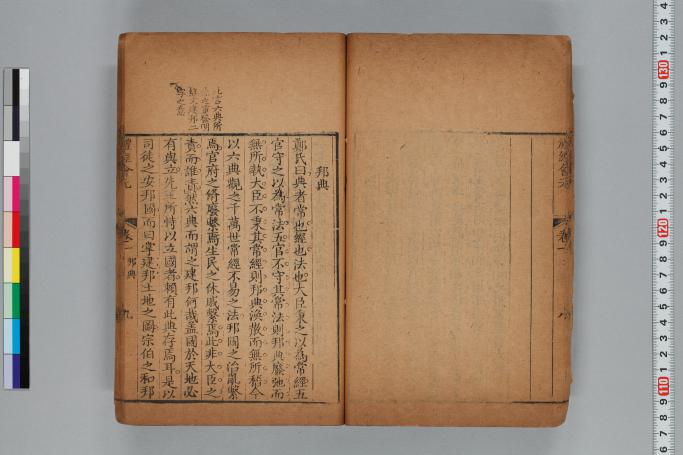 此言六典所
以之重發明
惟大建邦二
字之意
邦典
鄭氏曰典者常也經也法也大臣秉之以為常經五
官守之以為常法五官不守其常法則邦典廢弛而
無所執大臣不秉其常經則邦典渙散而無所稽今
以六典觀之千萬世常經不易之法邦國之治亂繫
焉官府之脩廢繫焉生民之休戚繫焉此非大臣之
責而誰責然六典而謂之建邦何哉蓋國於天地必
有與立先王所恃以立國者賴有此典存焉耳是以
司徒之安邦國而曰掌建邦土地之圖宗伯之和邦
禮經會元
卷一
邦典
九
禮經會元
卷一
130
120
110